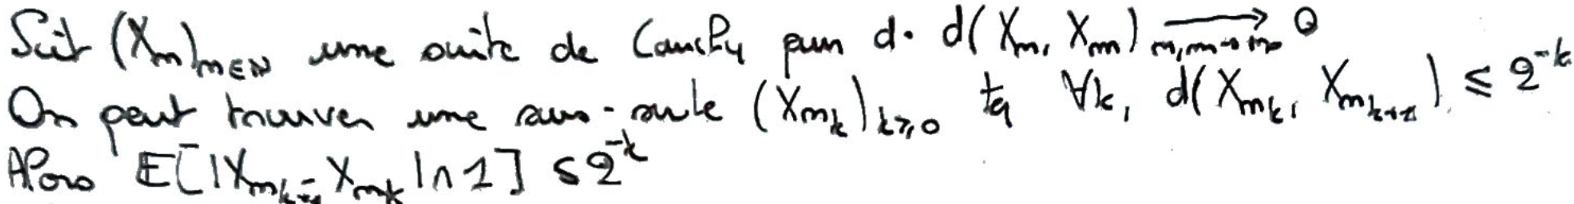 Soit (X_n)_{n∈ℕ} une suite de Cauchy pour d. d(X_n, X_m) →_{n,m→∞} 0
On peut trouver une sous-suite (X_{n_k})_{k≥0} tq ∀k, d(X_{n_k}, X_{n_{k+1}}) ≤ 2^{-k}
Alors E[|X_{n_{k+1}} - X_{n_k}| ∧ 1] ≤ 2^{-k}